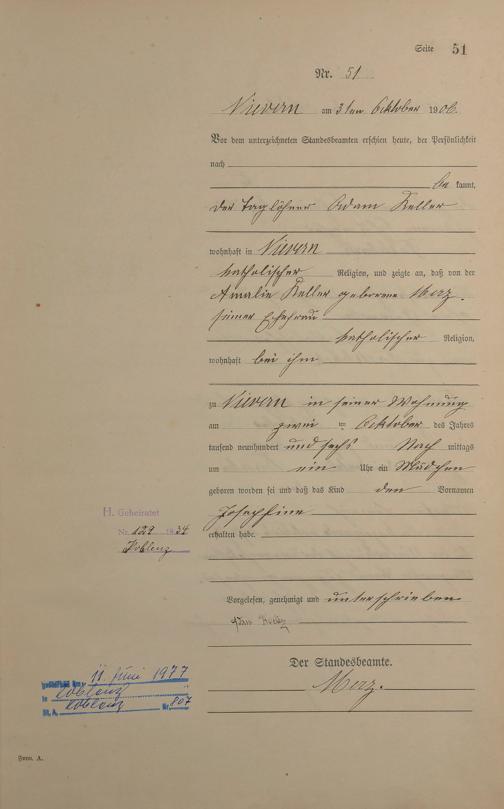 Seite 51
Nr. 51
Nievern am 3ten Oktober 1906.
Vor dem unterzeichneten Standesbeamten erschien heute, der Persönlichkeit
nach
be kannt,
der Taglöhner Adam Keller
wohnhaft in Nievern
katholischer Religion, und zeigte an, daß von der
Amalie Keller geborene Merz.
seiner Ehefrau
katholischer Religion,
wohnhaft bei ihm
zu Nievern in seiner Wohnung
am zwei ten Oktober des Jahres
tausend neunhundert und sechs Nach mittags
um ein Uhr ein Mädchen
geboren worden sei und daß das Kind den Vornamen
Josephine
H. Geheiratet
erhalten habe.
Nr. 129 1934
Koblenz
Vorgelesen, genehmigt und unterschrieben
Der Standesbeamte.
Merz.
11. Juni 1977
in Coblenz
St. A. Coblenz Nr. 807
Form. A.